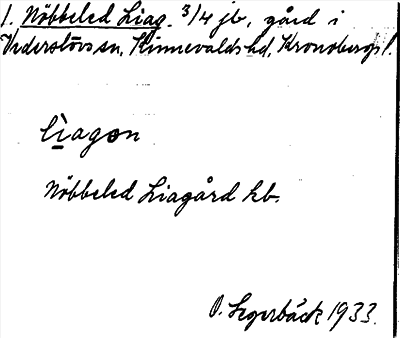 1. Nöbbeled Liag. 3/4 jb, gård i
Vederslövs sn, Kinnevalds hd, Kronobergs l.
liagɘn
Nöbbeled Liagård kb.
O. Segerbäck 1933.